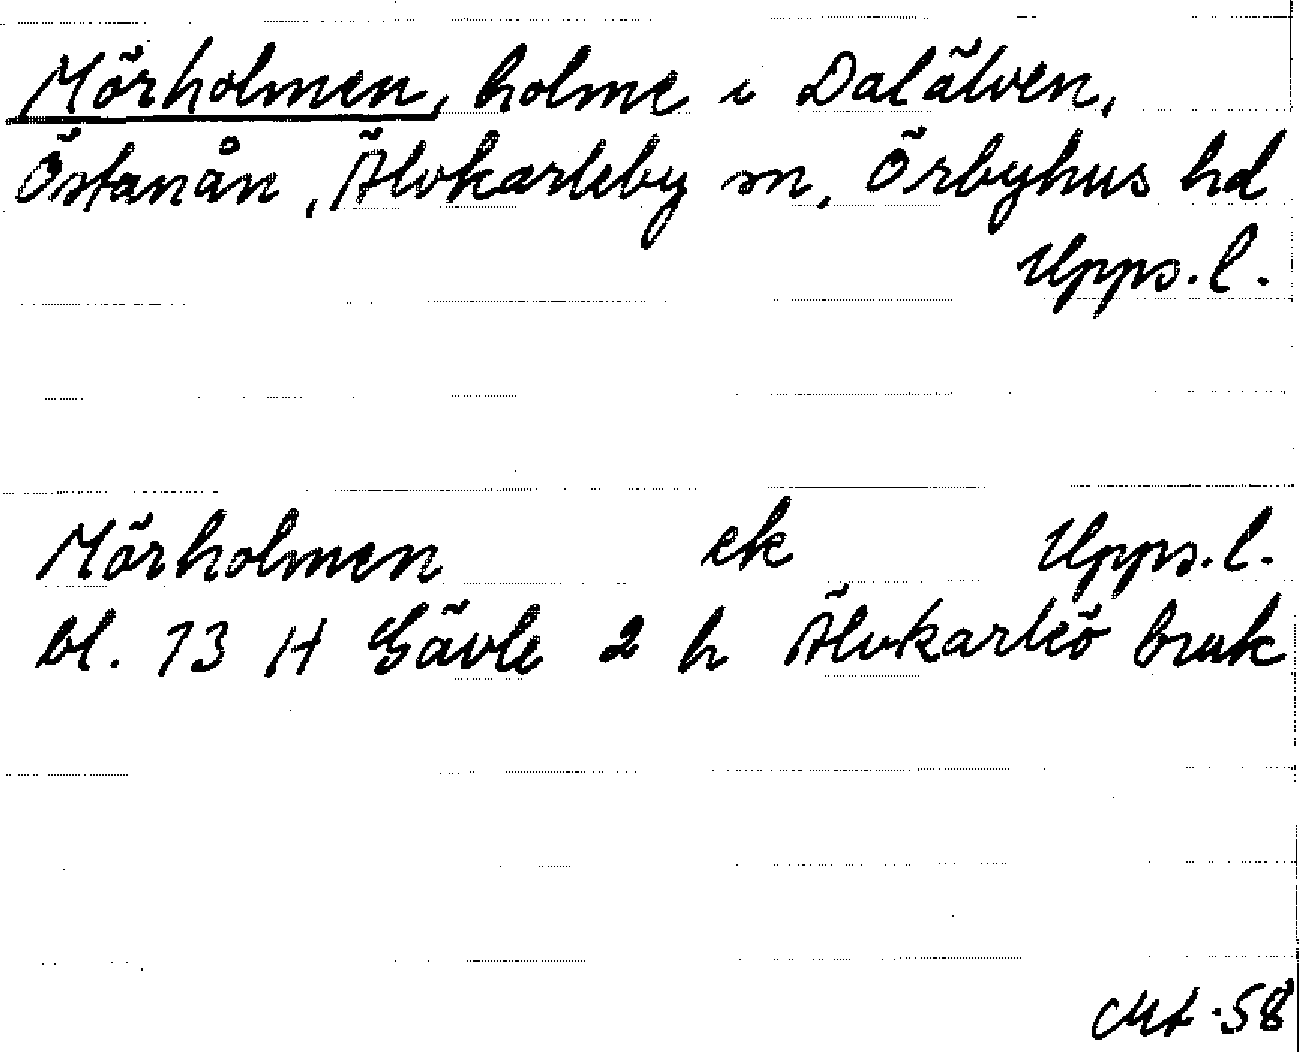 Mörholmen, holme i Dalälven,
Östanån, Älvkarleby sn, Örbyhus hd
Upps. l.
Mörholmen ek Upps. l.
bl. 13 H Gävle 2 h Älvkarleö bruk
-58